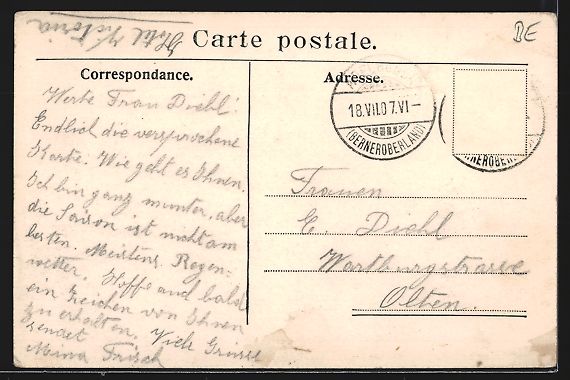 Hotel Victoria
BE
Carte postale.
Correspondance.
Adresse.
18.VII.07.VI–
(BERNEROBERLAND)
Werte Frau Diehl!
Endlich die versprochene
Karte. Wie geht es Ihnen.
Ich bin ganz munter, aber
die Saison ist nicht am
besten. Meistens Regen-
wetter. Hoffe auch bald
ein Zeichen von Ihnen
zu erhalten. Viele Grüsse
sendet
Mina Frisch
Frauen
E. Diehl
Wartburgstrasse
Olten.